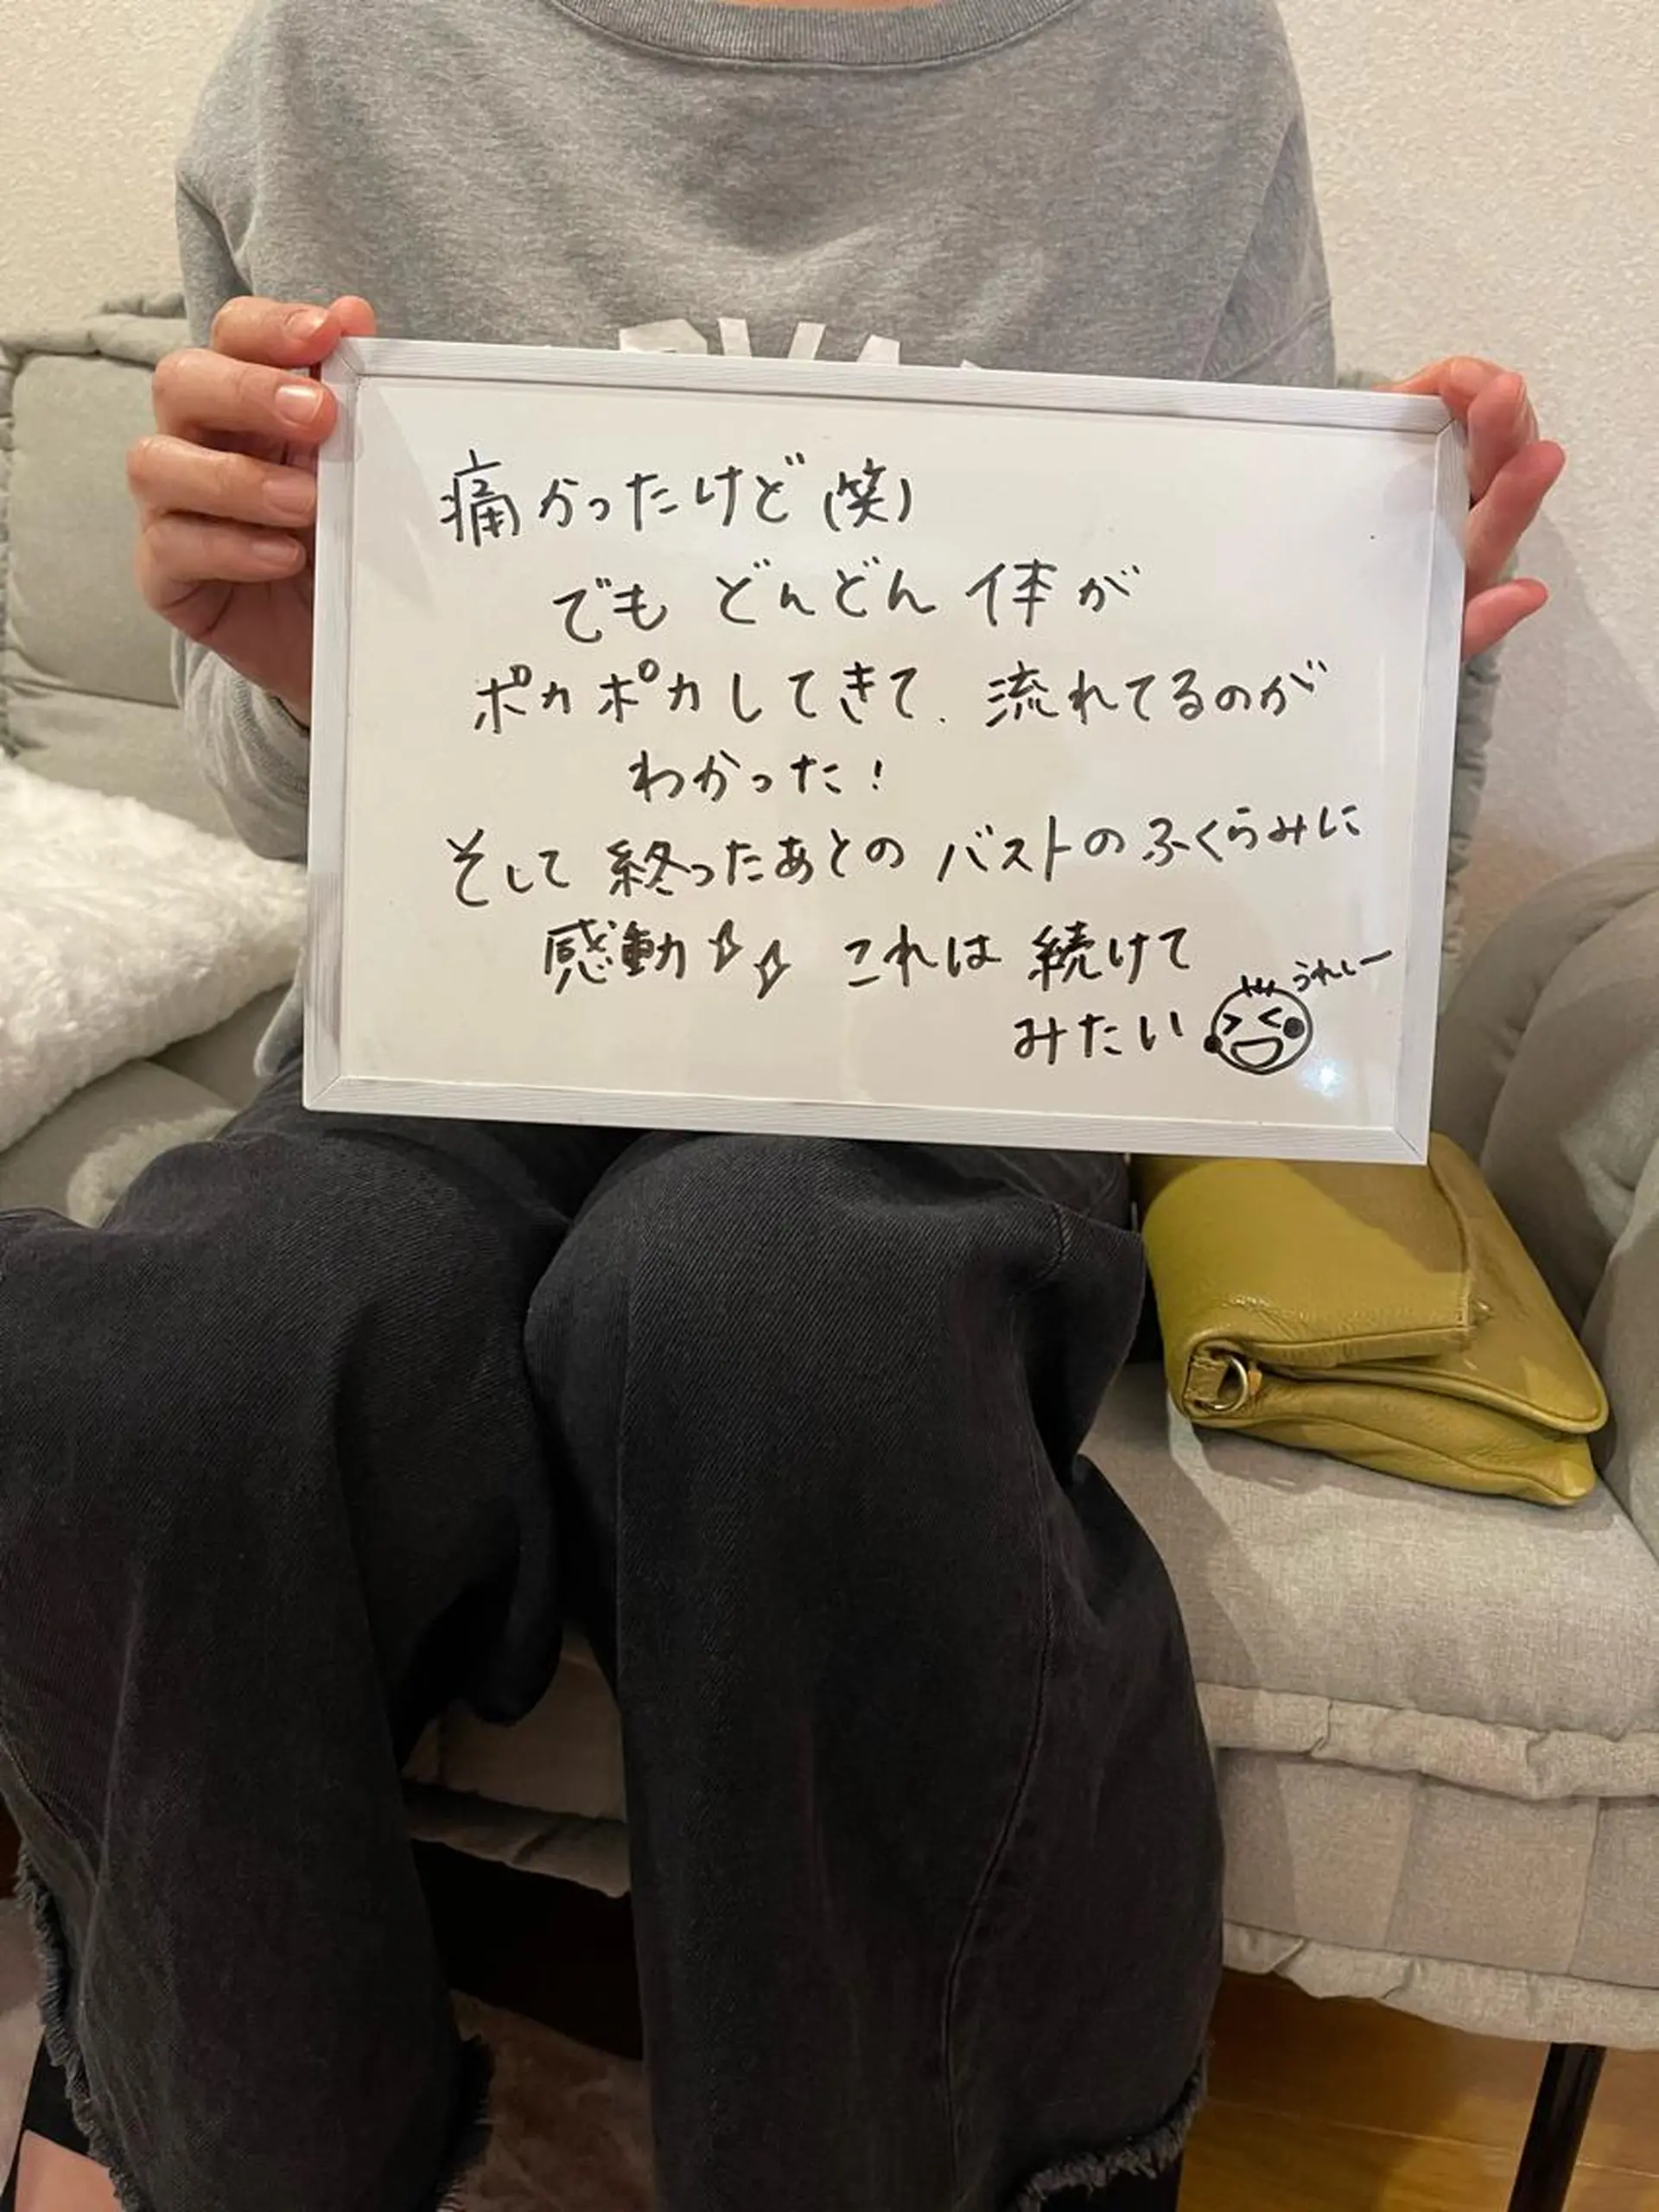 痛かったけど(笑)
でも どんどん 体が
ポカポカしてきて、流れてるのが
わかった!
そして 終ったあとの バストのふくらみに
感動 これは 続けて
みたい
うれしー